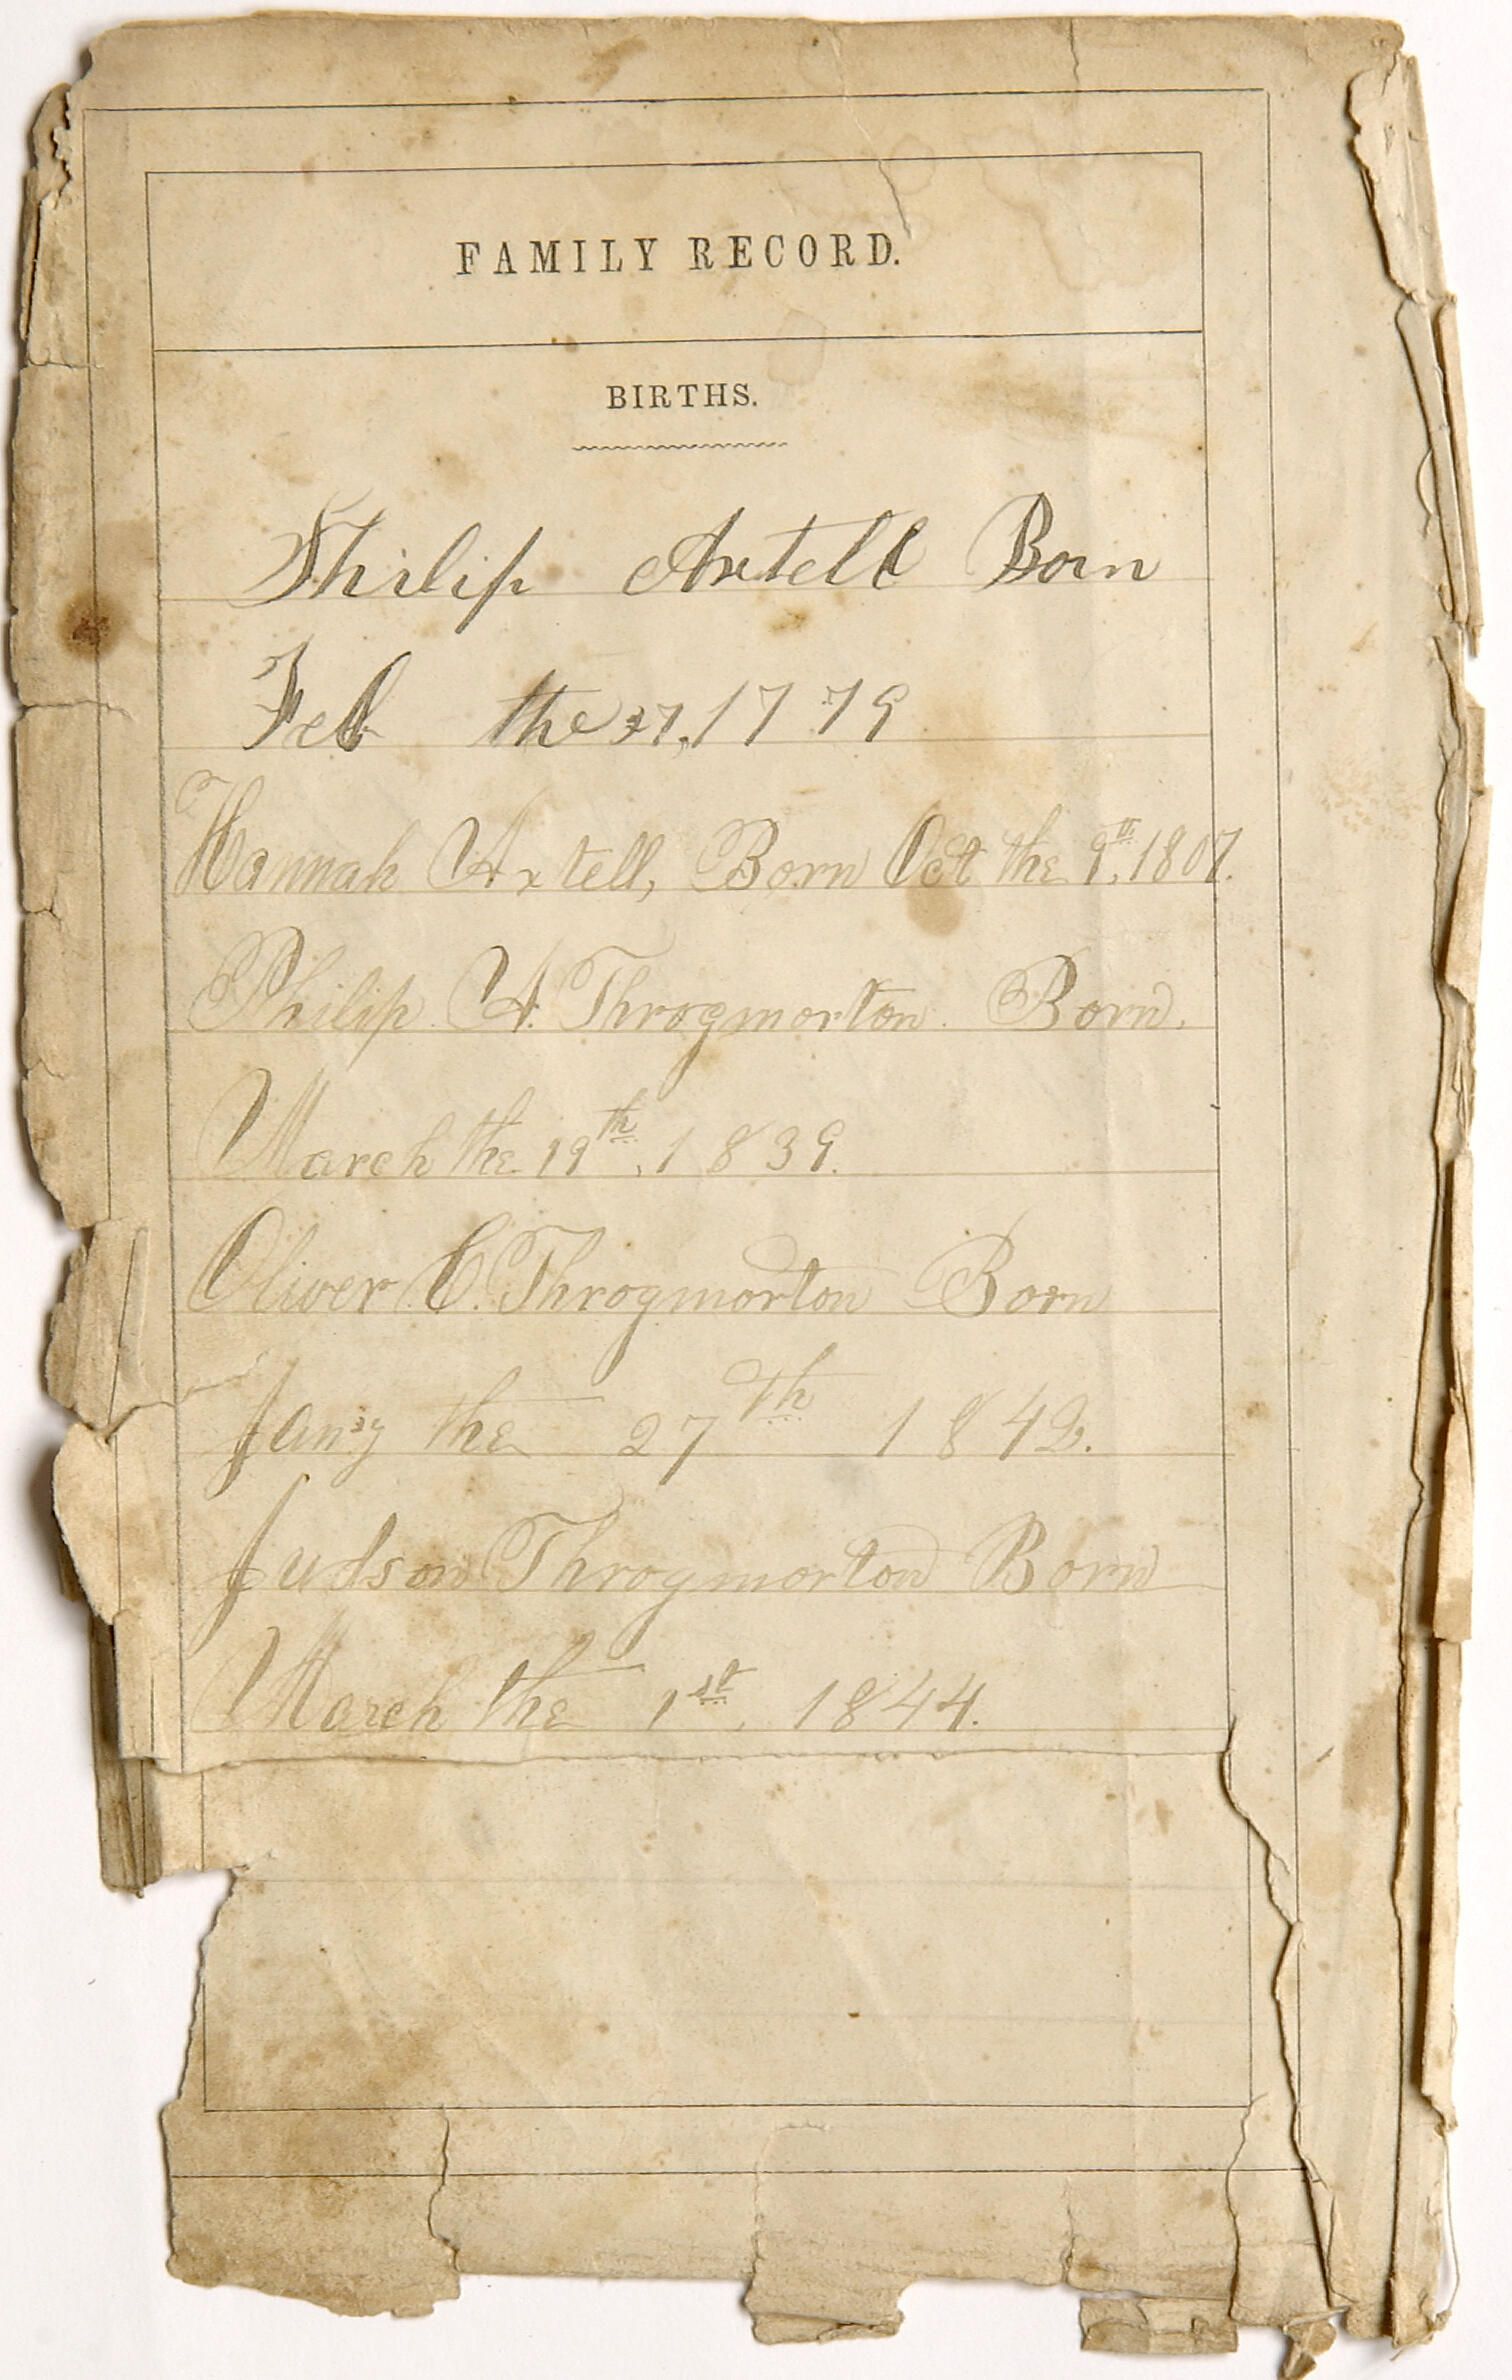 FAMILY RECORD.
BIRTHS.
Philip Axtell Born
Feb the 27, 1779
Hannah Axtell, Born Oct the 9th, 1807.
Philip A. Throgmorton Born.
March the 19th, 1839.
Oliver C. Throgmorton Born
Jany the 27th 1842.
Judson Throgmorton Born
March the 1st, 1844.